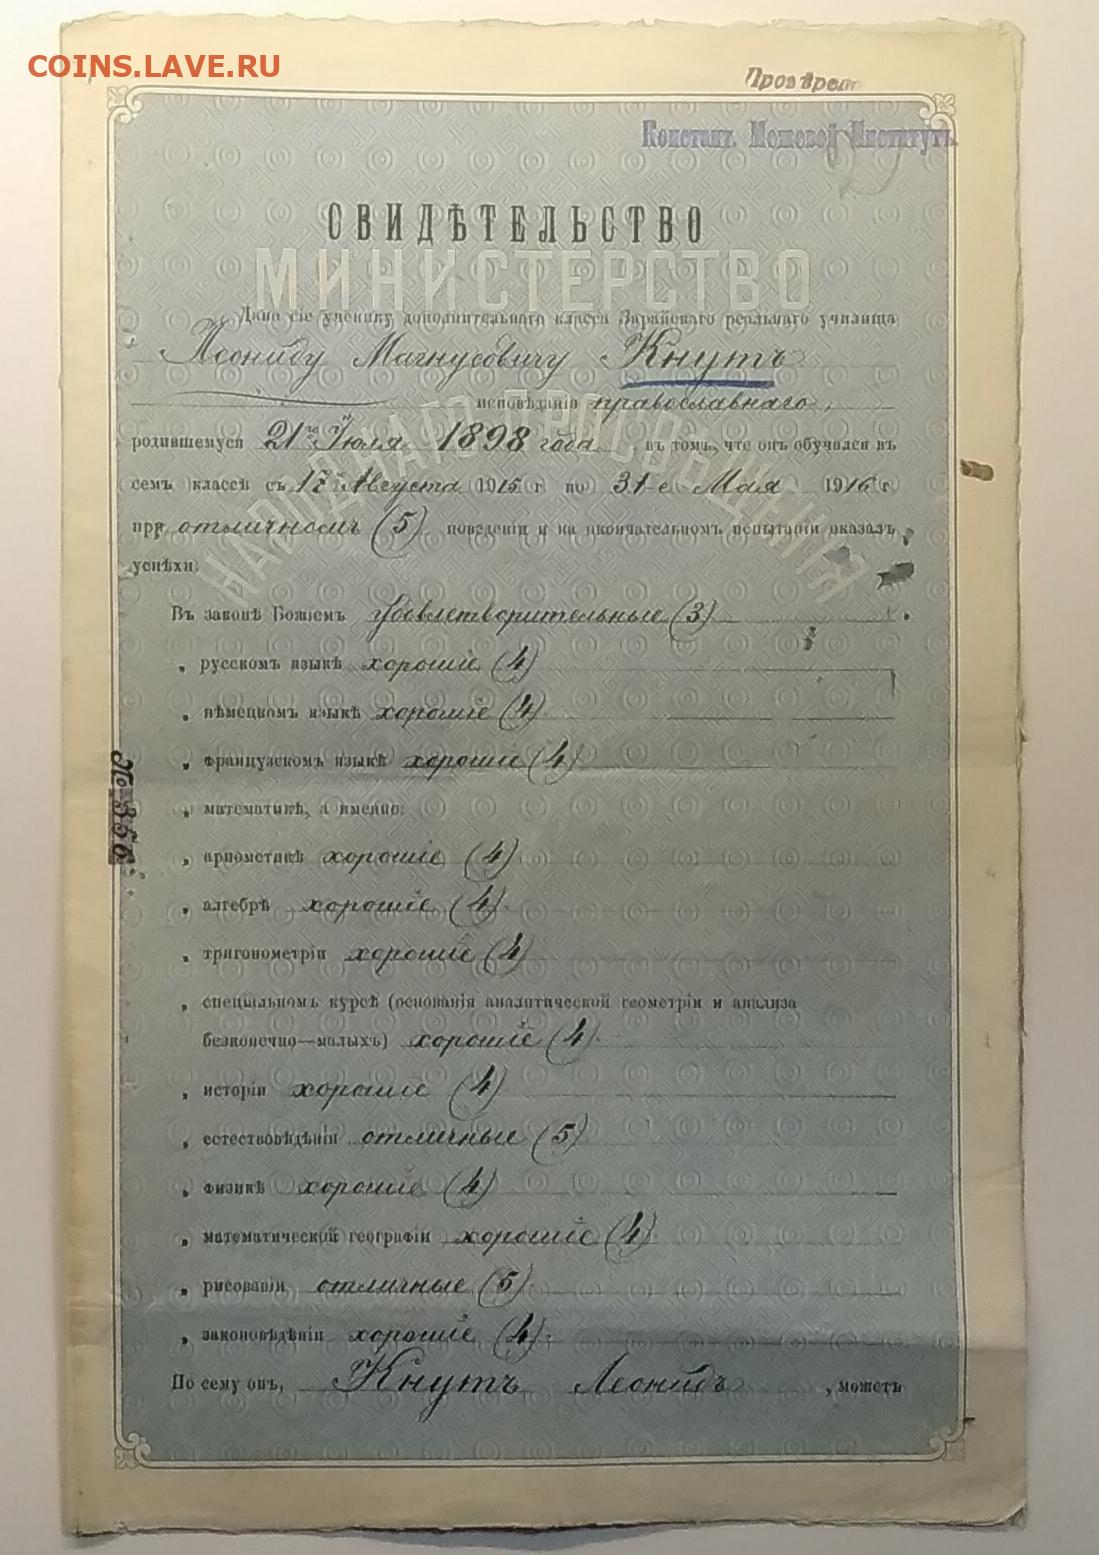 COINS.LAVE.RU
Провѣрено
Констан. Межевой Институтъ.
СВИДѢТЕЛЬСТВО
МИНИСТЕРСТВО
НАРОДНАГО ПРОСВѢЩЕНІЯ
Дано сіе ученику дополнительнаго класса Зарайскаго реальнаго училища
Леониду Магнусовичу Кнутъ
исповѣданія православнаго,
родившемуся 21го Іюля 1898 года, въ томъ, что онъ обучался въ
семъ классѣ съ 17 Августа 1915 г по 31-е Мая 1916 г
при отличномъ (5) поведеніи и на окончательномъ испытаніи оказалъ
успѣхи:
Въ законѣ Божіемъ удовлетворительные (3)
„ русскомъ языкѣ хорошіе (4)
„ нѣмецкомъ языкѣ хорошіе (4)
„ французскомъ языкѣ хорошіе (4)
„ математикѣ, а именно:
„ ариѳметикѣ хорошіе (4)
„ алгебрѣ хорошіе (4)
„ тригонометріи хорошіе (4)
„ спеціальномъ курсѣ (основанія аналитической геометріи и анализа
безконечно—малыхъ) хорошіе (4)
„ исторіи хорошіе (4)
„ естествовѣдѣніи отличные (5)
„ физикѣ хорошіе (4)
„ математической географіи хорошіе (4)
„ рисованіи отличные (5)
„ законовѣдѣніи хорошіе (4)
По сему онъ, Кнутъ Леонидъ, можетъ